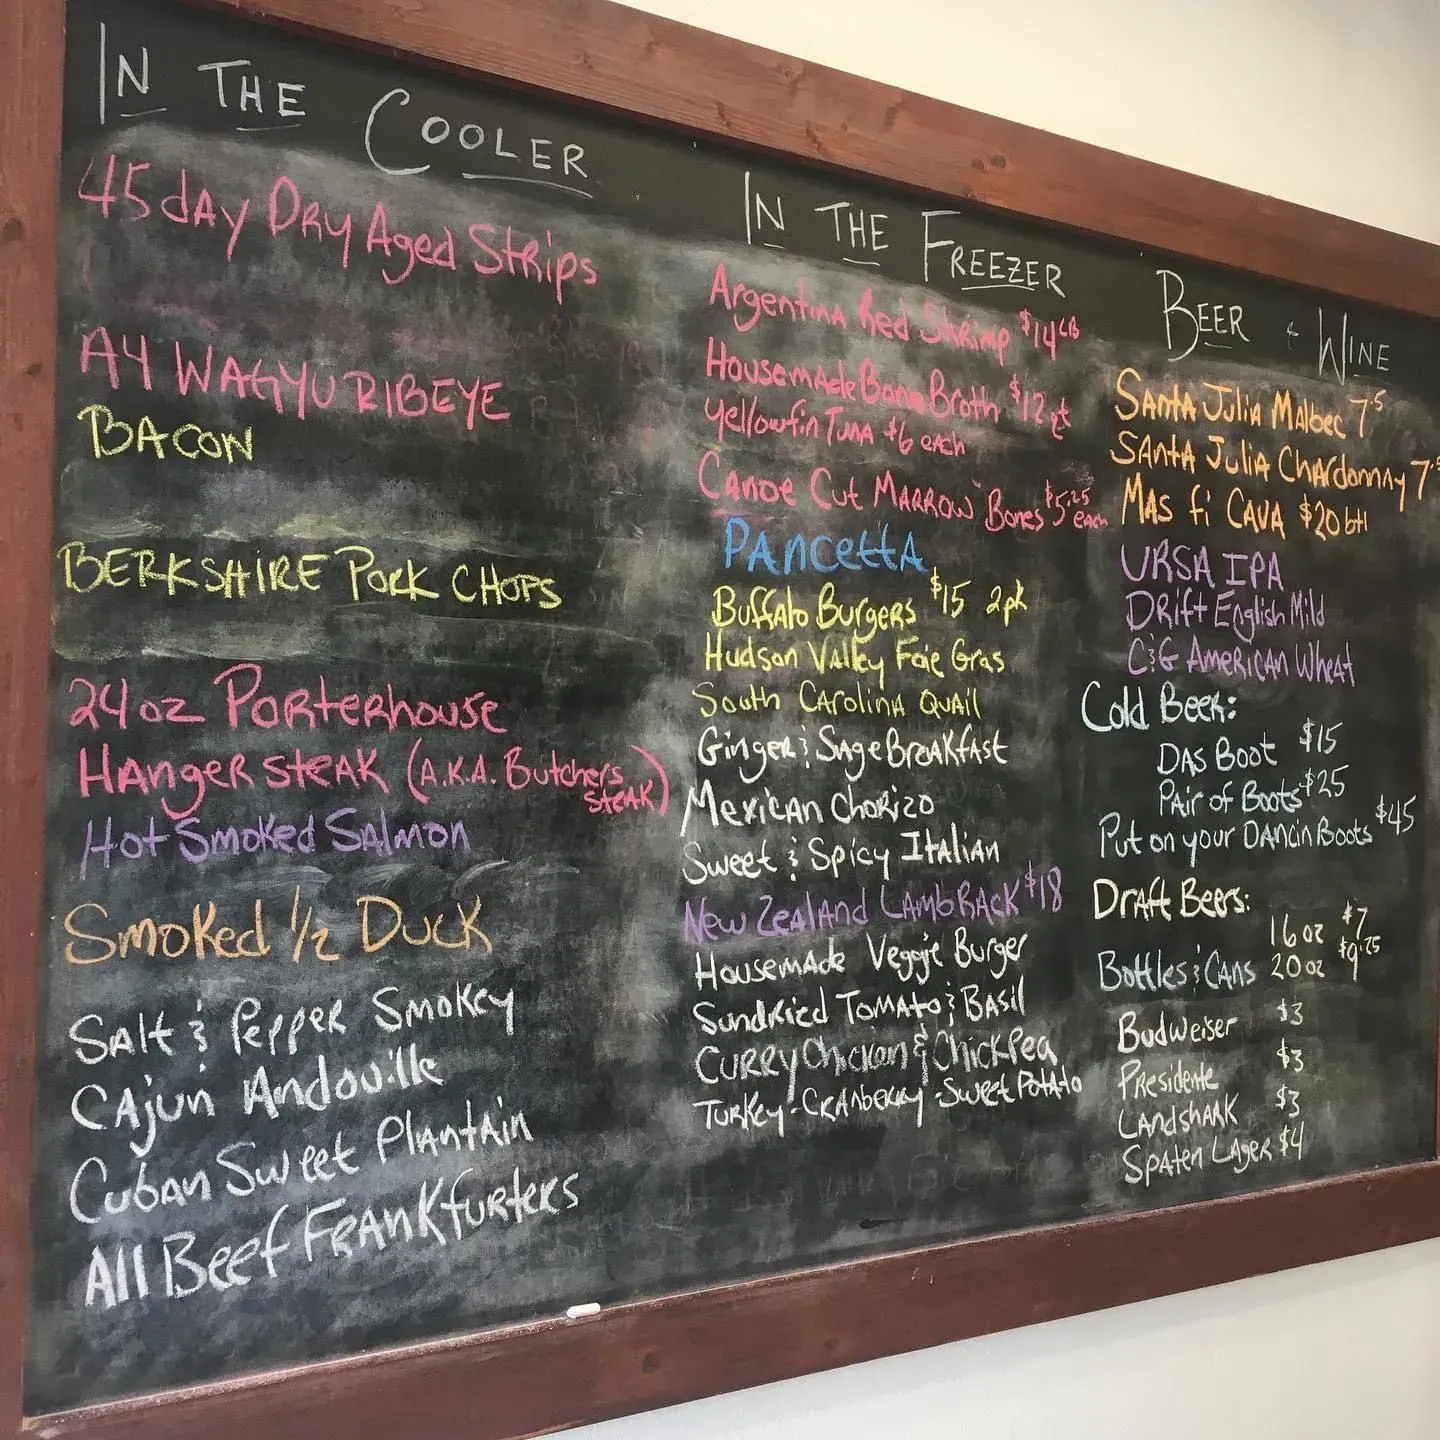 IN THE COOLER
45 day Dry Aged Strips
A4 WAGYU RIBEYE
BACON
BERKSHIRE PORK CHOPS
24 oz Porterhouse
Hanger steak (A.K.A. Butchers
steak)
Hot Smoked Salmon
Smoked 1/2 Duck
Salt & Pepper Smokey
Cajun Andouille
Cuban Sweet Plantain
All Beef Frankfurters
IN THE FREEZER
Argentina Red Shrimp $14 LB
Housemade Bone Broth $12 qt
Yellowfin Tuna $6 each
Canoe Cut Marrow Bones $5.25 each
PANCETTA
Buffalo Burgers $15 2pk
Hudson Valley Foie Gras
South Carolina Quail
Ginger & Sage Breakfast
Mexican Chorizo
Sweet & Spicy Italian
New Zealand Lamb Rack $18
Housemade Veggie Burger
Sundried Tomato & Basil
Curry Chicken & Chickpea
Turkey-Cranberry-Sweet Potato
BEER & WINE
Santa Julia Malbec 7.5
Santa Julia Chardonnay 7.5
Mas fi Cava $20 btl
URSA IPA
Drift English Mild
C&G American Wheat
Cold Beer:
Das Boot $15
Pair of Boots $25
Put on your Dancin Boots $45
Draft Beers:
16 oz $7
Bottles & Cans 20 oz $9.25
Budweiser $3
Presidente $3
Landshark $3
Spaten Lager $4